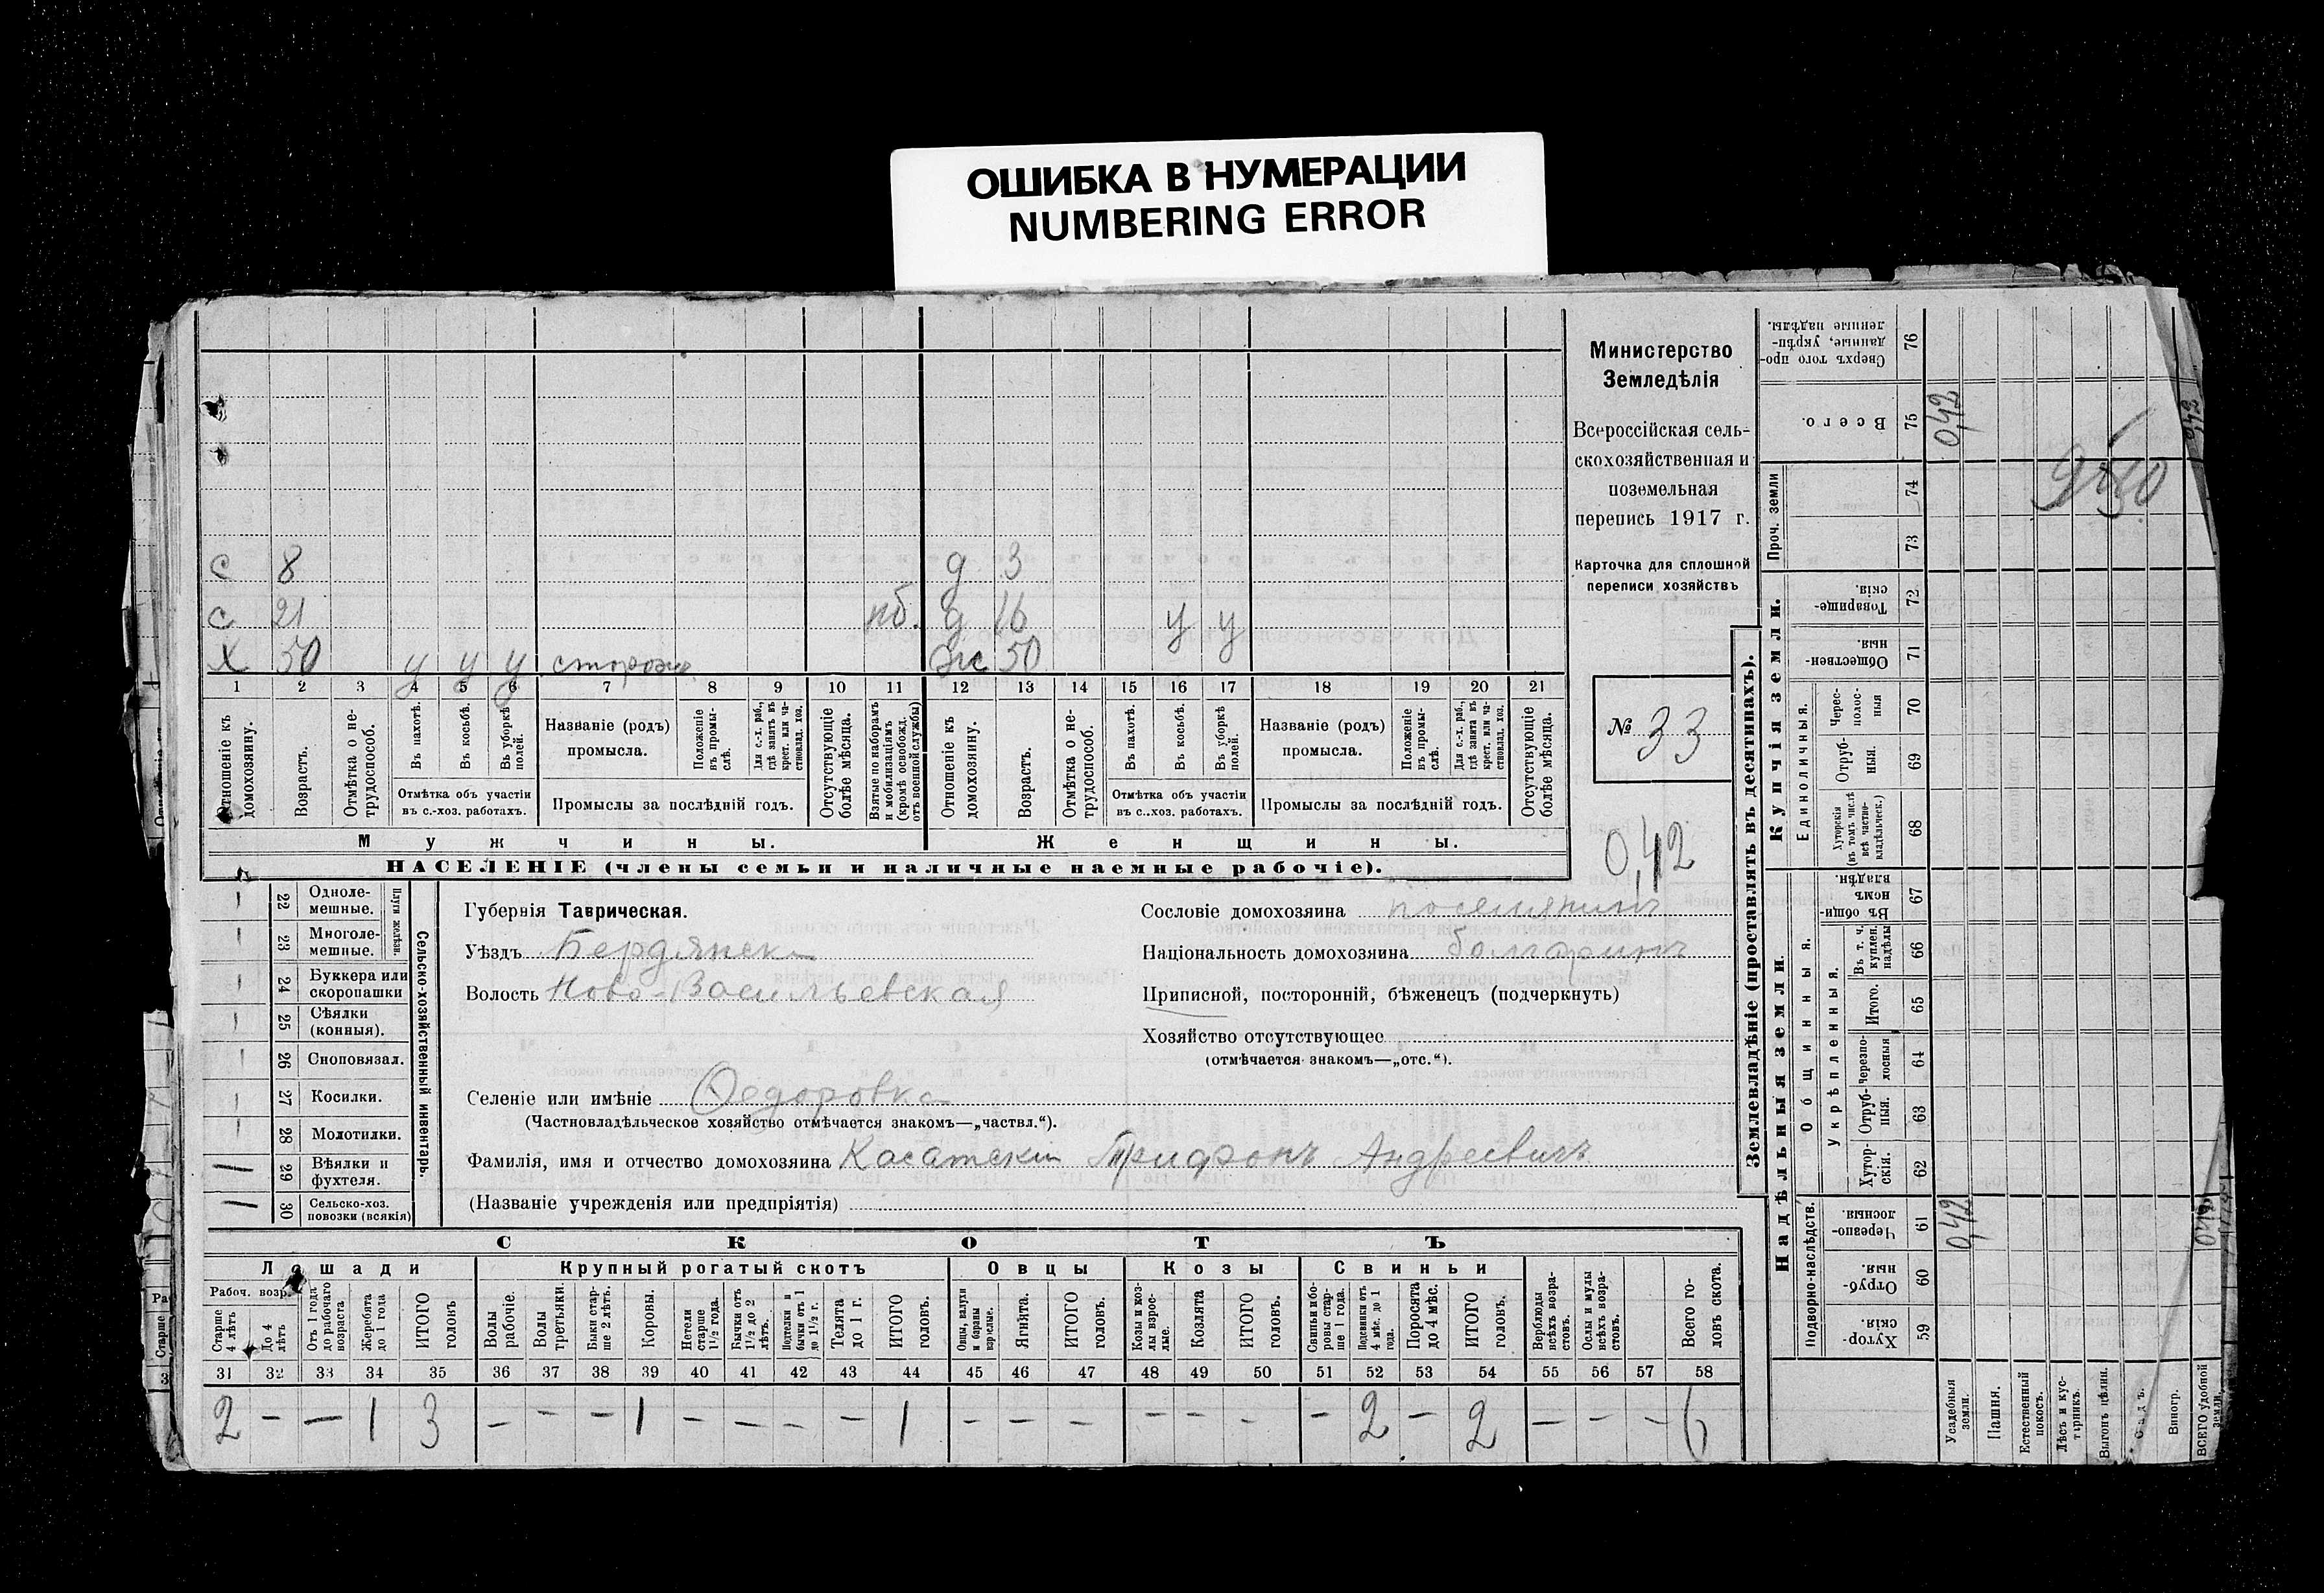 ОШИБКА В НУМЕРАЦИИ
NUMBERING ERROR
с 8 д 3
с 21 пб. д 16 у у
х 50 у у у сторожъ ж 50
1 2 3 4 5 6 7 8 9 10 11 12 13 14 15 16 17 18 19 20 21
Отношеніе къ домохозяину.
Возрастъ.
Отмѣтка о нетрудоспособ.
Въ пахотѣ.
Въ косьбѣ.
Въ уборкѣ полей.
Отмѣтка объ участіи въ с.-хоз. работахъ.
Названіе (родъ) промысла.
Положеніе въ промыслѣ.
Для с.-х. раб., гдѣ занятъ въ крест. или частновлад. хоз.
Промыслы за послѣдній годъ.
Отсутствующіе болѣе мѣсяца.
Взятые по наборамъ и мобилизаціямъ (кромѣ освобожд. отъ военной службы)
Отношеніе къ домохозяину.
Возрастъ.
Отмѣтка о нетрудоспособ.
Въ пахотѣ.
Въ косьбѣ.
Въ уборкѣ полей.
Отмѣтка объ участіи въ с..хоз. работахъ.
Названіе (родъ) промысла.
Положеніе въ промыслѣ.
Для с.-х. раб., гдѣ занятъ въ крест. или частновлад. хоз.
Промыслы за послѣдній годъ.
Отсутствующіе болѣе мѣсяца.
Мужчины. Женщины.
НАСЕЛЕНІЕ (члены семьи и наличные наемные рабочіе).
Министерство
Земледѣлія
Всероссійская сель-
скохозяйственная и
поземельная
перепись 1917 г.
Карточка для сплошной
переписи хозяйствъ
№ 33
0,42
22 Одноле-мешные.
23 Многоле-мешные.
Плуги желѣзн.
24 Буккера или скоропашки
25 Сѣялки (конныя).
26 Сноповязал.
27 Косилки.
28 Молотилки.
29 Вѣялки и фухтеля.
30 Сельско-хоз. повозки (всякія)
Сельско-хозяйственный инвентарь.
Губернія Таврическая.
Уѣздъ Бердянск
Волость Ново-Васильевская
Селеніе или имѣніе Федоровка
(Частновладѣльческое хозяйство отмѣчается знакомъ—„частвл.“).
Фамилія, имя и отчество домохозяина Касатскій Трифонъ Андреевичъ
(Названіе учрежденія или предпріятія)
Сословіе домохозяина поселянинъ
Національность домохозяина болгаринъ
Приписной, посторонній, бѣженецъ (подчеркнуть)
Хозяйство отсутствующее
(отмѣчается знакомъ—„отс.“).
СКОТЪ
Лошади Крупный рогатый скотъ Овцы Козы Свиньи
Рабоч. возр.
Старше 4 лѣтъ
До 4 лѣтъ
Отъ 1 года до рабочаго возраста
Жеребята до 1 года
ИТОГО головъ
Волы рабочіе.
Волы третьяки.
Быки старше 2 лѣтъ.
Коровы.
Нетели старше 1½ года.
Бычки отъ 1½ до 2 лѣтъ.
Подтелки и бычки отъ 1 до 1½ г.
Телята до 1 г.
ИТОГО головъ.
Овцы, валухи и бараны взрослые.
Ягнята.
ИТОГО головъ.
Козы и козлы взрослые.
Козлята
ИТОГО головъ.
Свиньи и боровы старше 1 года.
Подсвинки отъ 4 мѣс. до 1 года.
Поросята до 4 мѣс.
ИТОГО головъ.
Верблюды всѣхъ возрастовъ.
Ослы и мулы всѣхъ возрастовъ.
Всего головъ скота.
31 32 33 34 35 36 37 38 39 40 41 42 43 44 45 46 47 48 49 50 51 52 53 54 55 56 57 58
2 - - 1 3 - - - 1 - - - - 1 - - - - - - - 2 - 2 - - - 6
Землевладѣніе (проставлять въ десятинахъ).
Купчія земли.
Надѣльныя земли.
Сверхъ того проданные, укрѣпленные надѣлы. 76
Всего. 75 0,42
Проч. земли 74 73
Товарищескія. 72
Общественныя 71
Единоличныя.
Чересполосныя 70
Отрубныя. 69
Хуторскія (въ томъ числѣ всѣ частновладѣльческ.) 68
Общинныя.
Въ общинномъ владѣн. 67
Укрѣпленныя.
Въ т. ч. куплен. надѣлы 66
Итого. 65
Черезполосныя 64
Отрубныя. 63
Хуторскія. 62
Подворно-наслѣдств.
Черезполосныя. 61 0,42
Отрубныя. 60
Хуторскія 59
Усадебныя земли.
Пашня.
Естественный покосъ.
Лѣсъ и кустарникъ.
Выгонъ цѣлин.
Садъ.
Виногр.
ВСЕГО удобной земли.
0,42